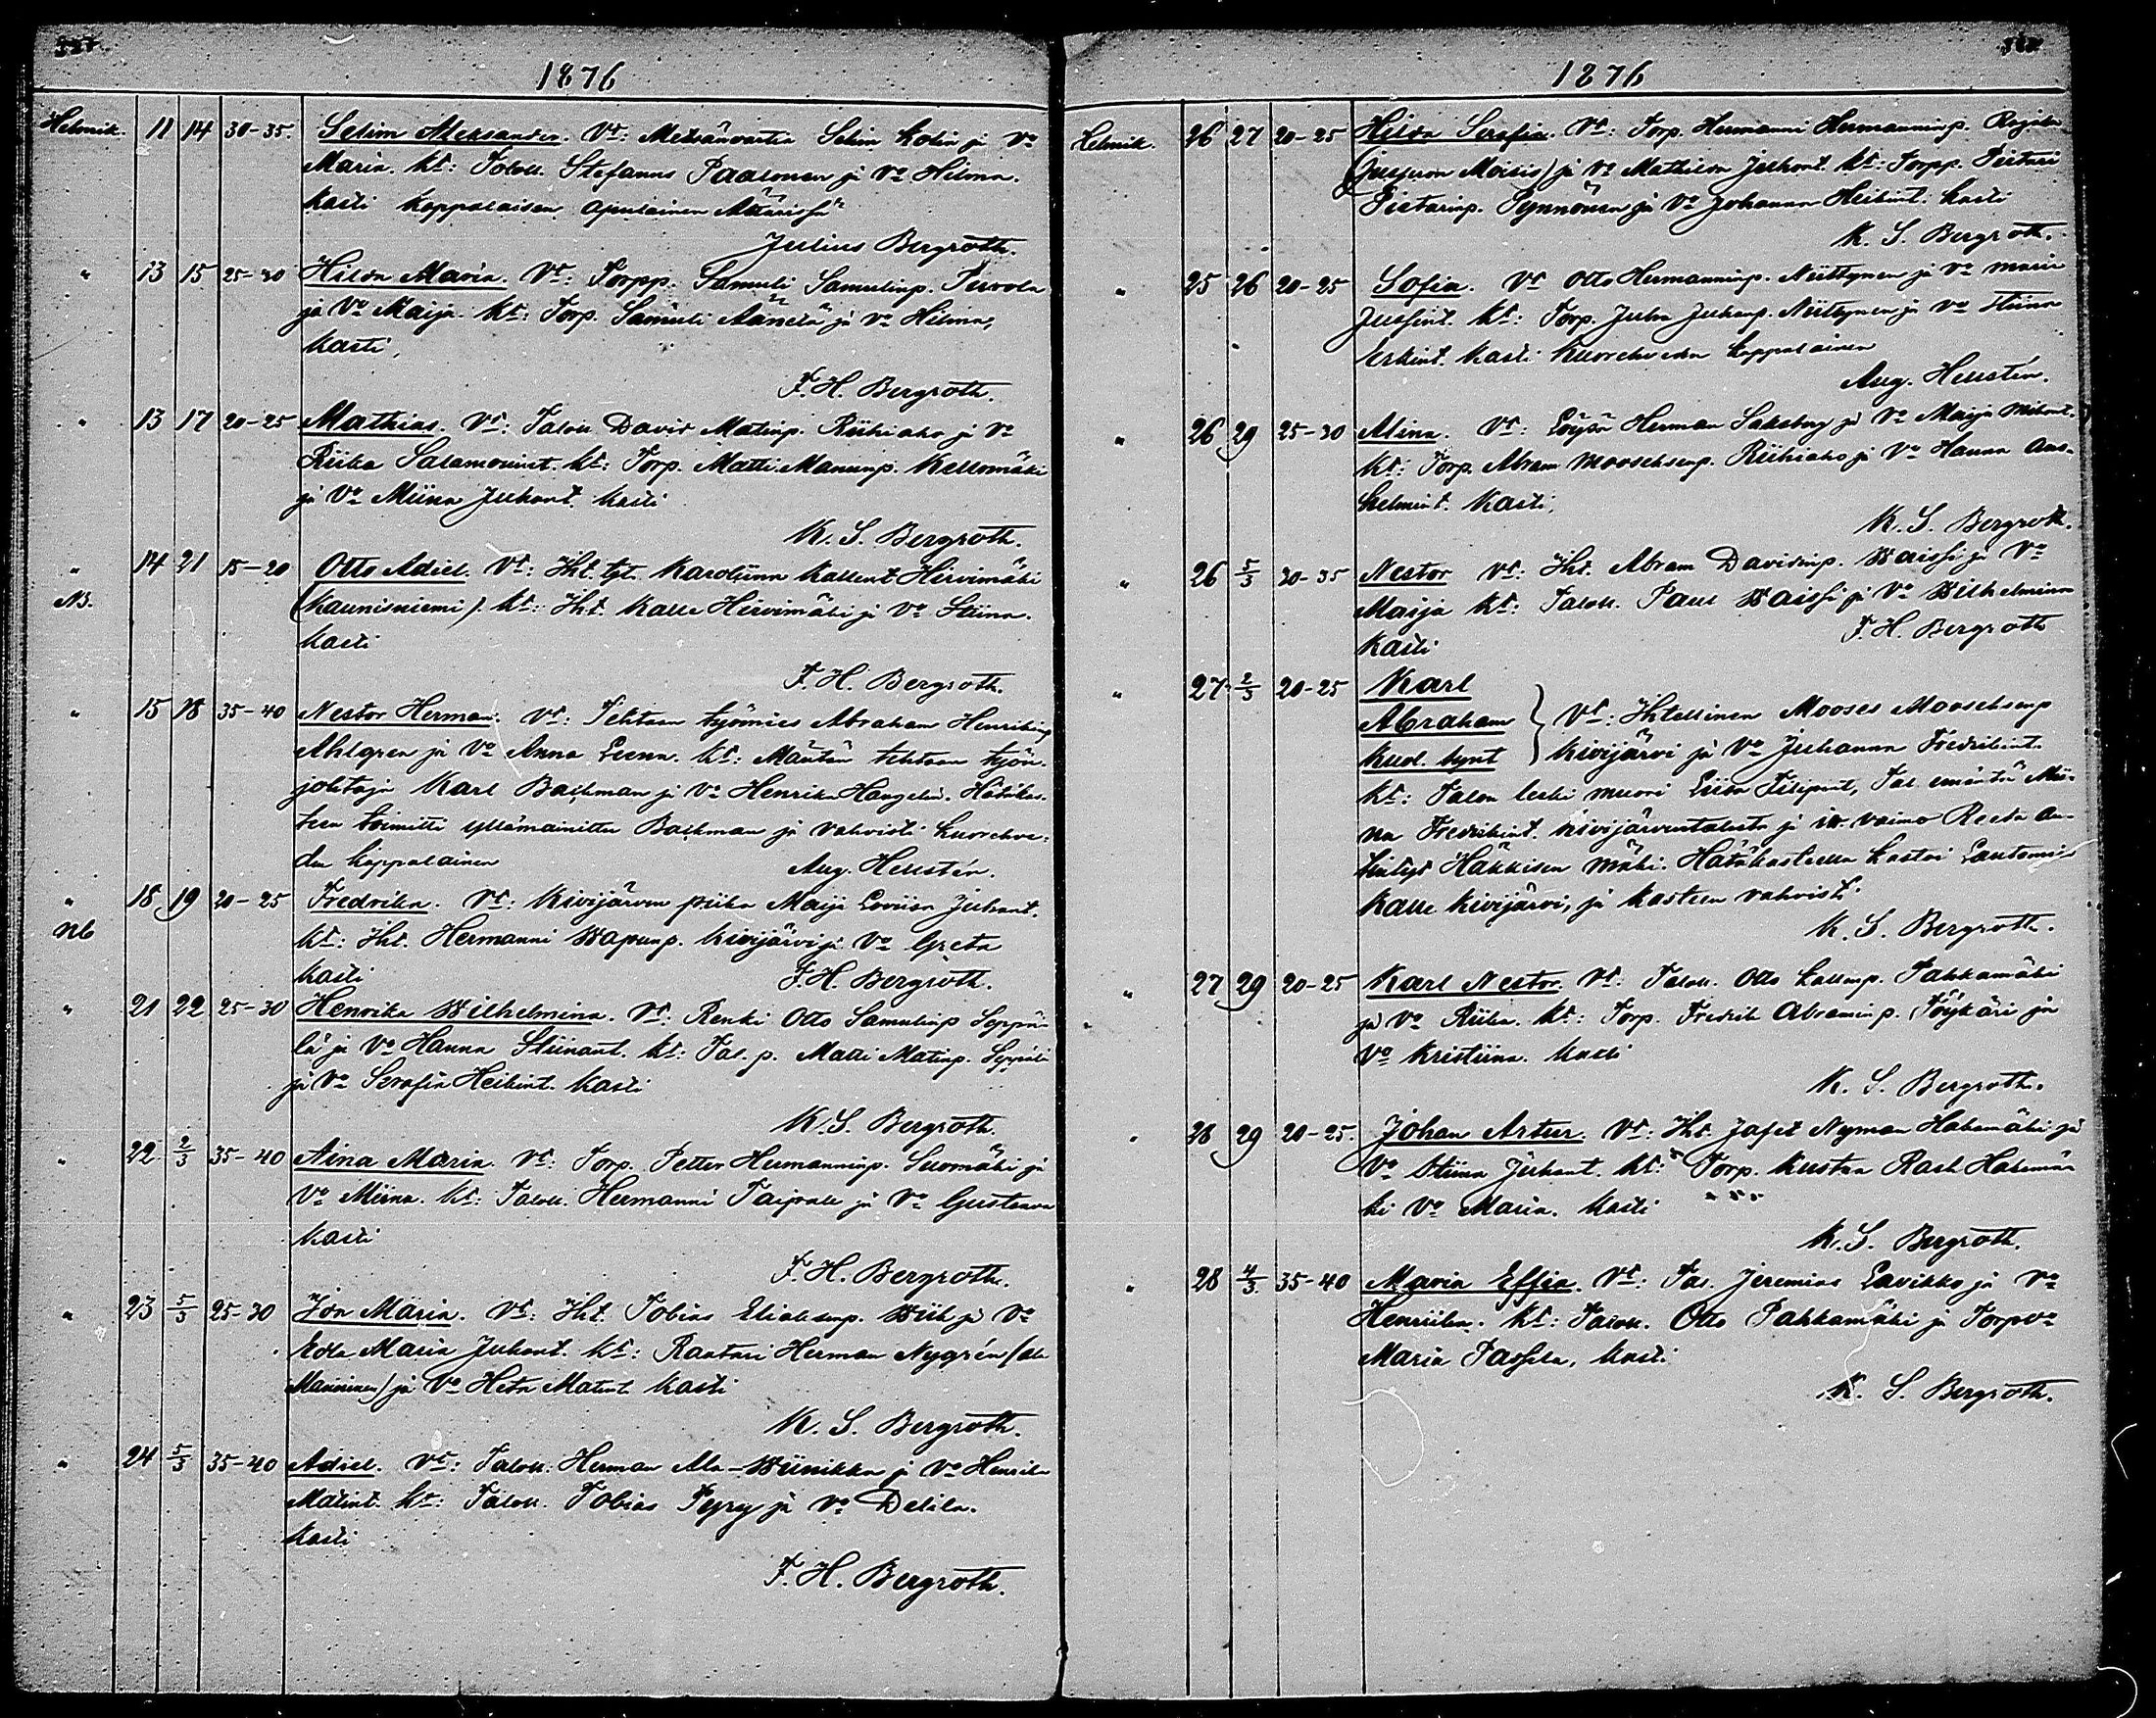 1876
Helmik. 11 14 30-35. Selim Aleksander. Vt: Metsänvartia Selim Kolin ja Vo
Maria. Kt: Taloll. Stefanus Paalonen ja Vo Hilma.
Kasti Kappalaisen apulainen Mäntässä
Julius Bergroth.
" 13 15 25-30 Hilda Maria. Vt: Torpp. Samuli Samulinp. Turvola
ja Vo Maija. Kt: Torp. Samuli Äänelä ja Vo Hilma,
Kasti,
F. H. Bergroth.
" 13 17 20-25 Mathias. Vt: Taloll. David Matinp. Riihiaho ja Vo
Riika Salamonint. Kt: Torp. Matti Manunp. Kellomäki
ja Vo Miina Juhant. Kasti
K. S. Bergroth.
" 14 21 15-20 Otto Adiel. Vt: Iht. tyt. Karoliina Kallent. Hirvimäki
NB. (Kaunisniemi). Kt: Iht. Kalle Hirvimäki ja Vo Stiina.
Kasti
F. H. Bergroth.
" 15 18 35-40 Nestor Herman. Vt: Tehtaan työmies Abraham Henrikinp
Ahlgren ja Vo Anna Leena. Kt: Mäntän tehtaan työn-
johtaja Karl Backman ja Vo Henrika Hangelin. Hätäkas-
teen toimitti yllämainittu Backman ja vahvisti Kuorehve-
den kappalainen Aug. Hellstén.
" 18 19 20-25 Fredrika. Vt: Kivijärven piika Maija Loviisa Juhant.
Nb Kt: Iht. Hermanni Wapunp. Kivijärvi ja Vo Greta
Kasti F. H. Bergroth.
" 21 22 25-30 Henrika Wilhelmina. Vt: Renki Otto Samulinp Seppä-
lä ja Vo Hanna Stiinant. Kt: Tal. p. Matti Matinp. Seppälä
ja Vo Serafia Heikint. Kasti
K. S. Bergroth.
" 22 2/3 35-40 Aina Maria. Vt: Torp. Petter Hermanninp. Suomäki ja
Vo Miina. Kt: Taloll. Hermanni Taipale ja Vo Gustaava
Kasti
F. H. Bergroth.
" 23 5/3 25-30 Ida Maria. Vt: Iht. Tobias Eliaksenp. Wiik ja Vo
Edla Maria Juhant. Kt: Raatari Herman Nygrén (Ala
Manninen) ja Vo Heta Matint. Kasti
K. S. Bergroth.
" 24 5/3 35-40 Adiel. Vt: Taloll. Herman Ala-Wiinikka ja Vo Henrika
Matint. Kt: Taloll. Tobias Pyry ja Vo Delila.
Kasti
F. H. Bergroth.
1876
Helmik. 26 27 20-25 Hilda Serafia. Vt: Torp. Hermanni Hermanninp. Rajala
(Jusjuron Moisis) ja Vo Mathilda Juhont. Kt: Torpp. Pietari
Pietarinp. Synnönen ja Vo Johanna Heikint. Kasti
K. S. Bergroth.
" 25 26 20-25 Sofia. Vt Otto Hermanninp. Niittynen ja Vo Maria
Jussint. Kt: Torp. Juha Juhanp. Niittynen ja Vo Stiina
Erkint. Kasti Kuoreheden kappalainen
Aug. Hellstén.
" 26 29 25-30 Alina. Vt: Löysä Herman Saksberg ja Vo Maija Mikont.
Kt: Torp. Abram Mooseksenp. Riihiaho ja Vo Hanna Ans-
helmint. Kasti,
K. S. Bergroth.
" 26 5/3 30-35 Nestor Vt: Iht. Abram Davidinp. Waissi ja Vo
Maija Kt: Taloll. Paul Waissi ja Vo Wilhelmina
Kasti F. H. Bergroth
" 27 2/3 20-25 Karl
Abraham Vt: Ihtellinen Mooses Mooseksenp
Kuol. synt Kivijärvi ja Vo Juhanna Fredrikint.
Kt: Talon leski muori Liisa Filipint, Tal. emäntä Mii-
na Fredrikint. Kivijärventalosta ja it. vaimo Reeta An-
tintyt. Häkkisen mäki. Hätäkasteella kastoi Lautamies
Kalle Kivijärvi, ja kasteen vahvisti
K. S. Bergroth.
" 27 29 20-25 Karl Nestor. Vt: Taloll. Otto Kallenp. Pahkamäki
ja Vo Riika. Kt: Torp. Fredrik Abraminp. Töykäri ja
Vo Kristiina. Kasti
K. S. Bergroth.
" 28 29 20-25. Johan Artur. Vt: Iht. Jafet Nyman Hakamäki ja
Vo Stiina Juhant. Kt: Torp. Kustaa Rask Hakamä-
ki Vo Maria. Kasti
K. S. Bergroth.
" 28 4/3 35-40 Maria Effia. Vt: Tal. Jeremias Lavikko ja Vo
Henriika. Kt: Taloll. Otto Pahkamäki ja Torp Vo
Maria Passila, Kasti
K. S. Bergroth.